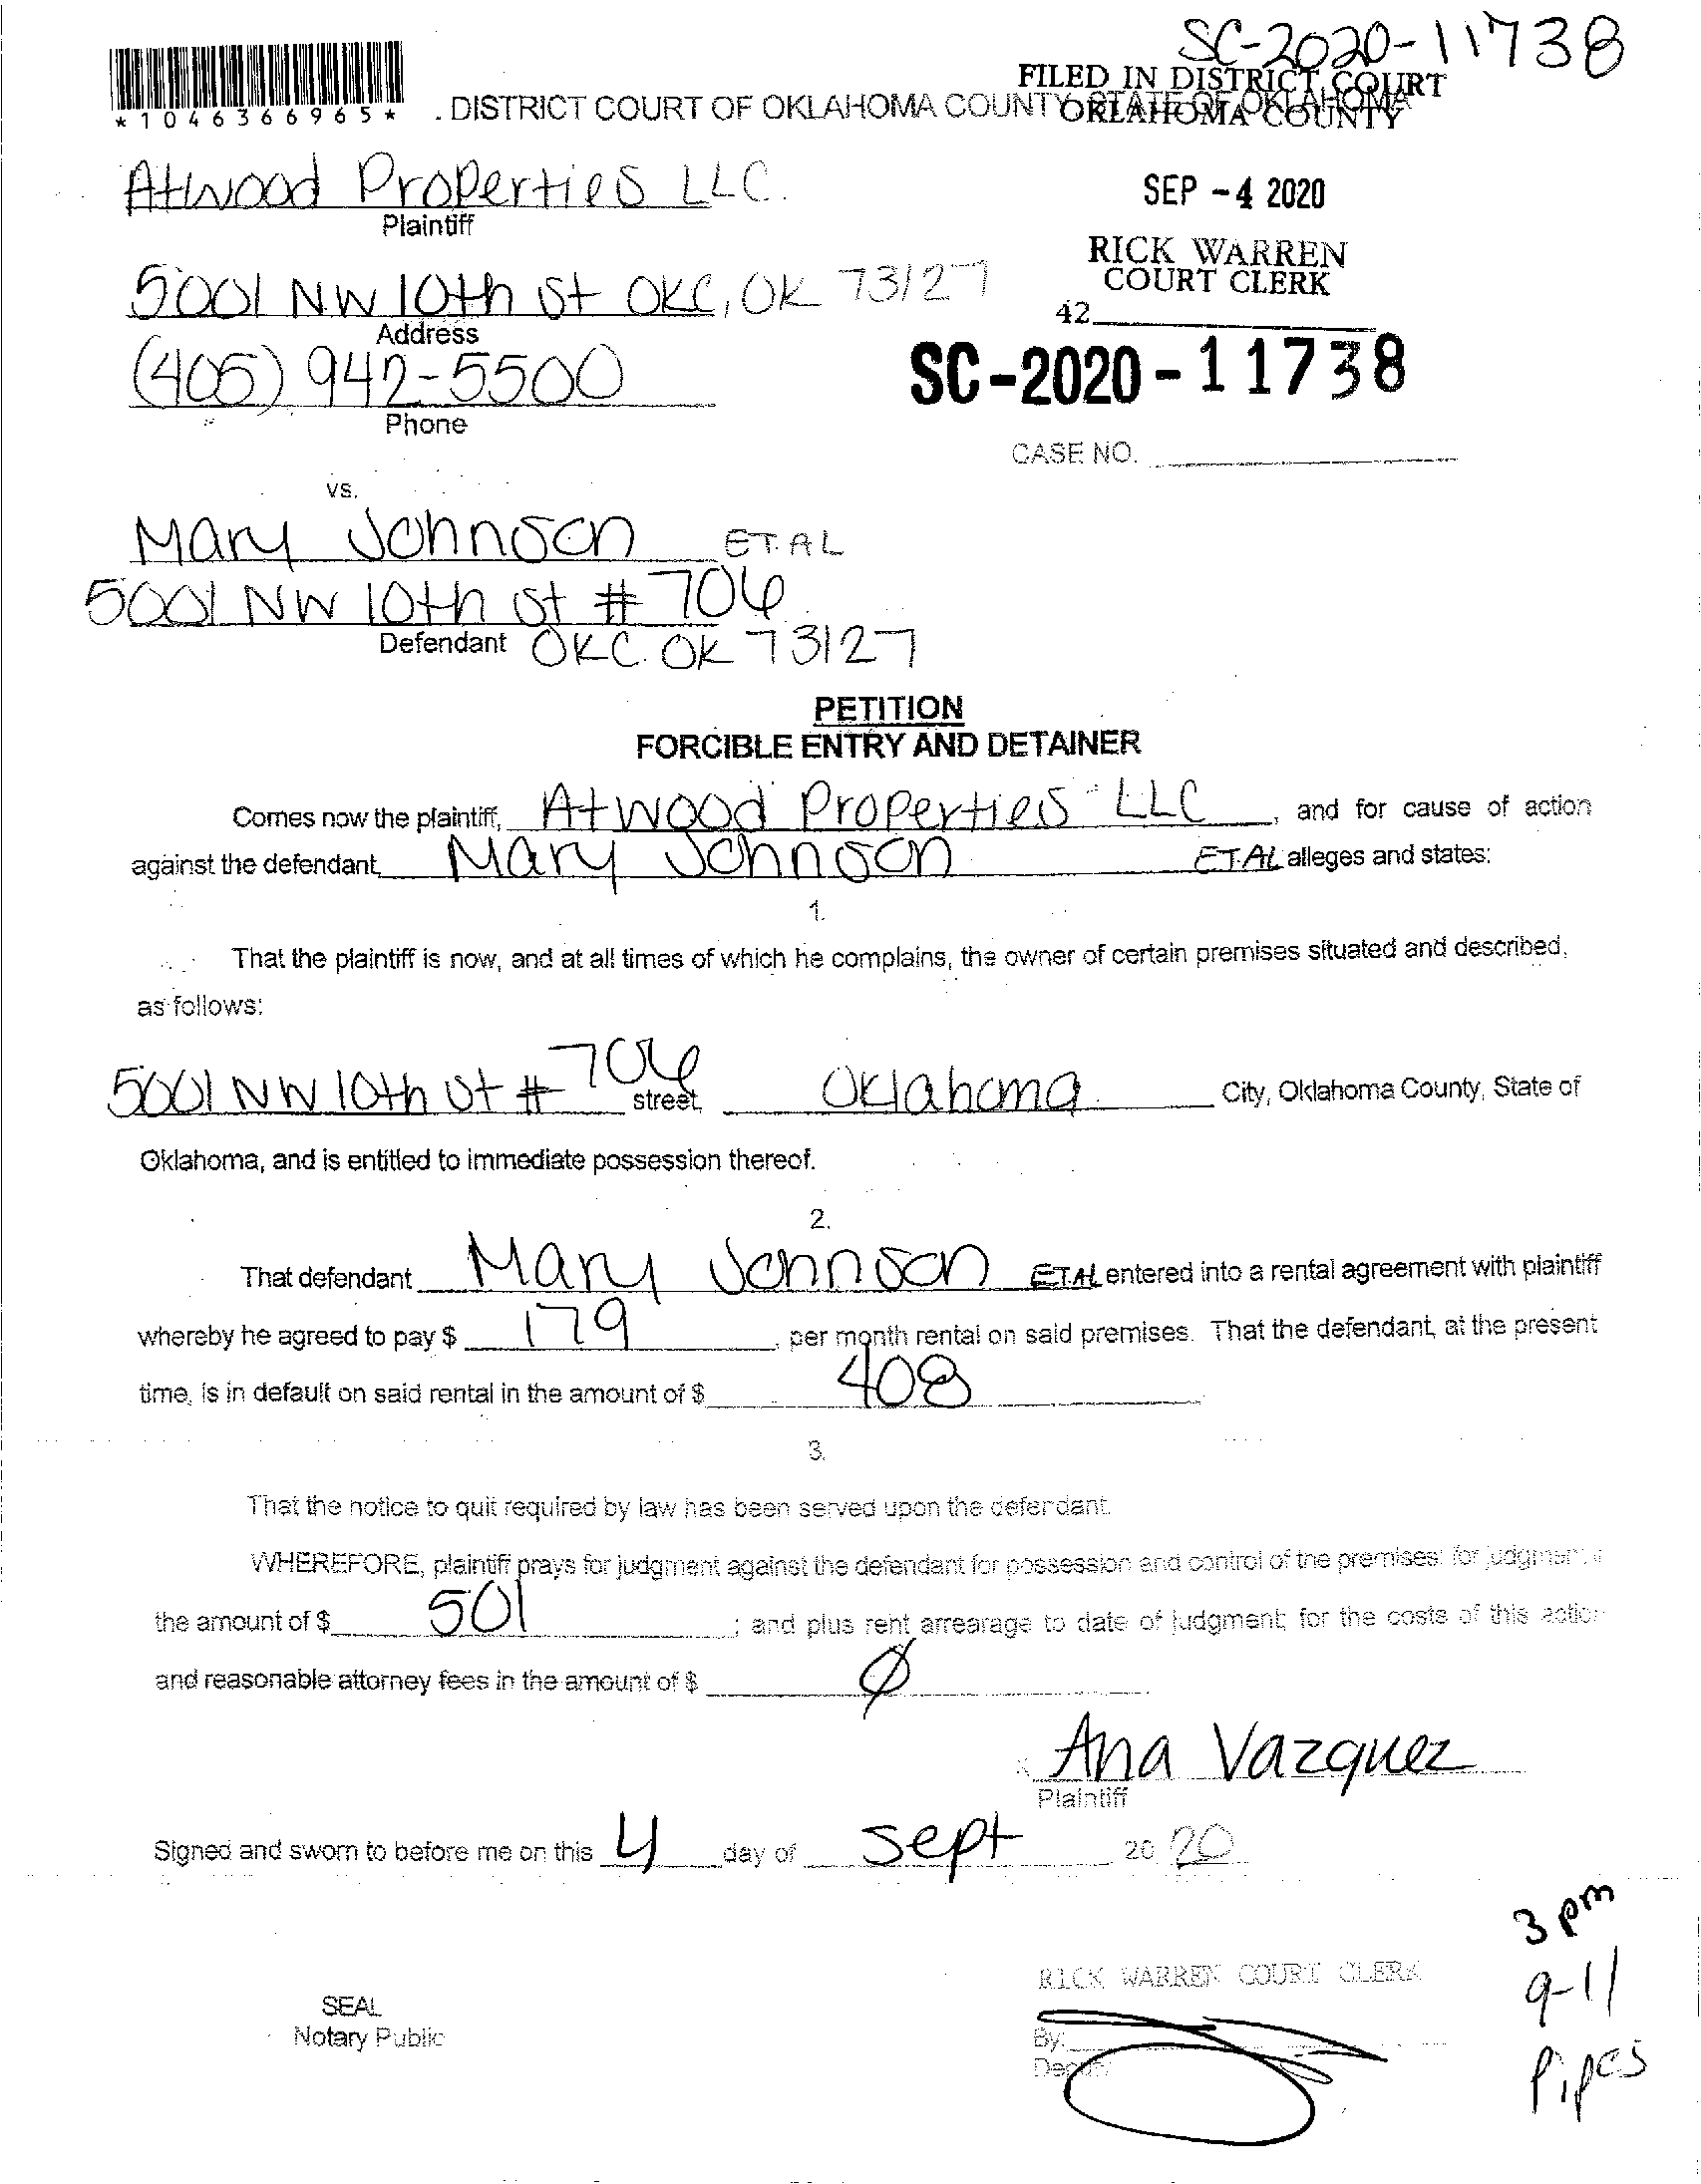 SC-2020-11738
FILED IN DISTRICT COURT
OKLAHOMA COUNTY
*1046366965*
. DISTRICT COURT OF OKLAHOMA COUNTY STATE OF OKLAHOMA
Atwood Properties LLC.
Plaintiff
SEP -4 2020
RICK WARREN
COURT CLERK
42
5001 NW 10th St OKC, OK 73127
Address
(405) 942-5500
Phone
SC-2020-11738
CASE NO.
vs.
Mary Johnson ET.AL
5001 NW 10th St # 706
Defendant OKC. OK 73127
PETITION
FORCIBLE ENTRY AND DETAINER
Comes now the plaintiff, Atwood Properties LLC, and for cause of action
against the defendant, Mary Johnson ET.AL alleges and states:
1.
That the plaintiff is now, and at all times of which he complains, the owner of certain premises situated and described,
as follows:
5001 NW 10th St # 706 street, Oklahoma City, Oklahoma County, State of
Oklahoma, and is entitled to immediate possession thereof.
2.
That defendant Mary Johnson ET.AL entered into a rental agreement with plaintiff
whereby he agreed to pay $ 179, per month rental on said premises. That the defendant, at the present
time, is in default on said rental in the amount of $ 408
3.
That the notice to quit required by law has been served upon the defendant.
WHEREFORE, plaintiff prays for judgment against the defendant for possession and control of the premises: for judgment
the amount of $ 501; and plus rent arrearage to date of judgment; for the costs of this action
and reasonable attorney fees in the amount of $ Ø
x Ana Vazquez
Plaintiff
Signed and sworn to before me on this 4 day of Sept 20 20
3 pm
9-11
Pipes
RICK WARREN COURT CLERK
SEAL
Notary Public
By:
Deputy